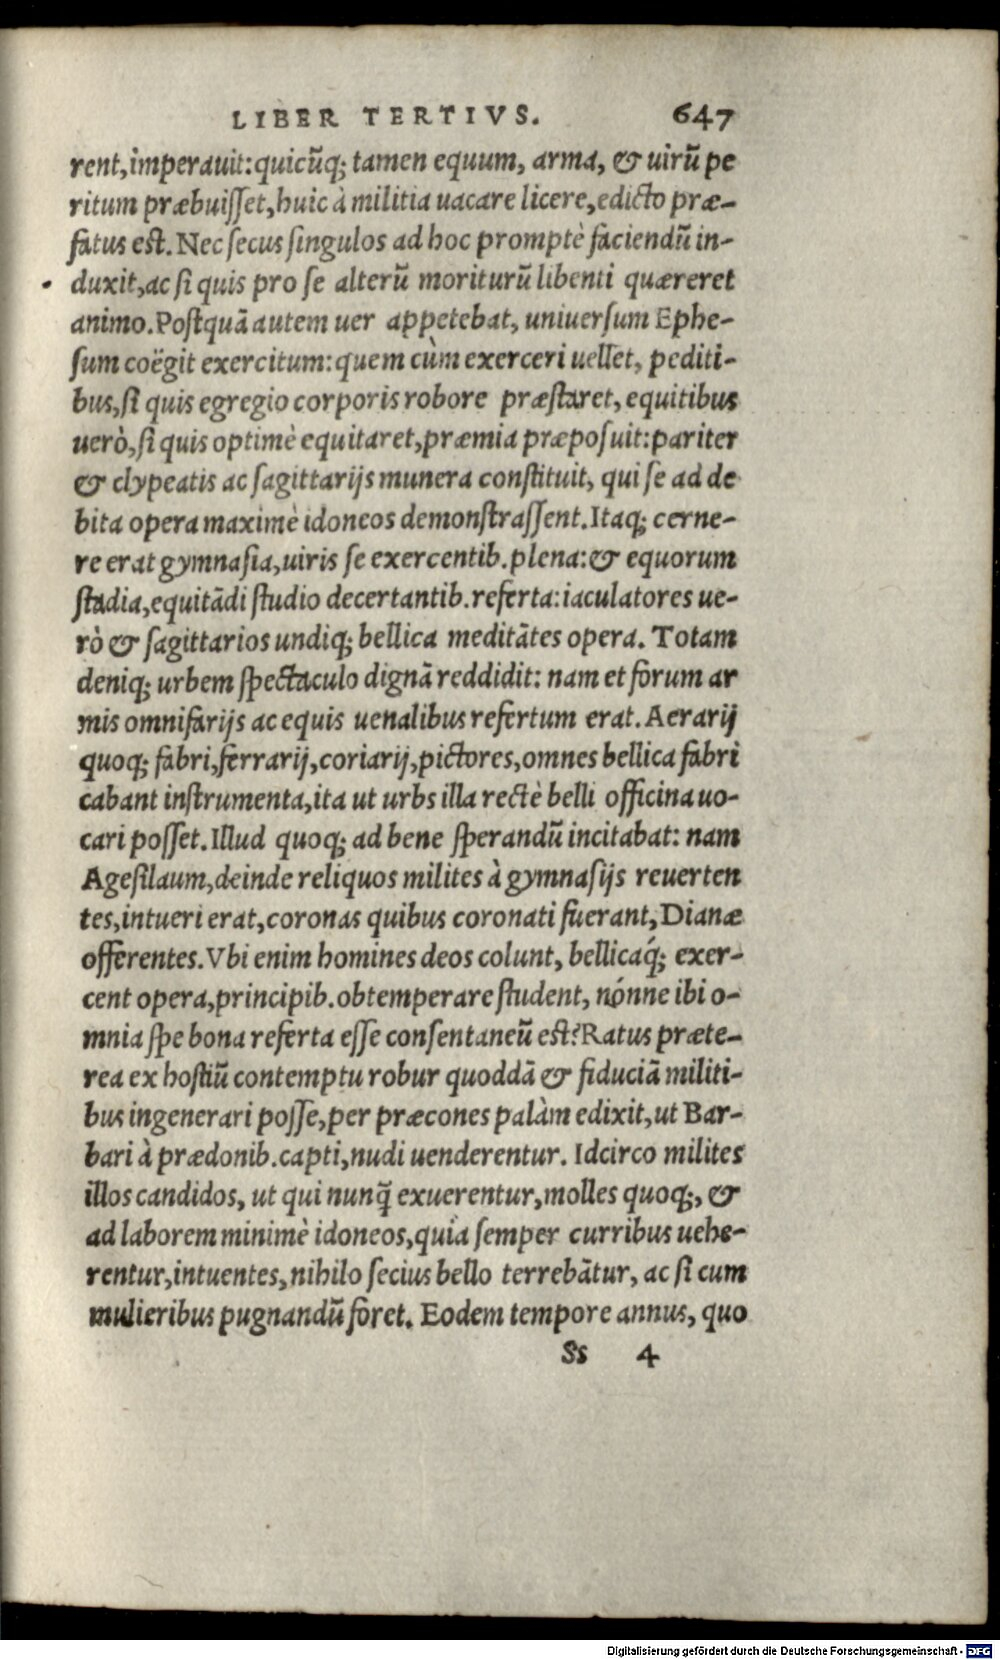 LIBER TERTIVS. 647
rent, imperauit: quicũq; tamen equum, arma, & uirũ pe
ritum præbuisset, huic à militia uacare licere, edicto præ-
fatus est. Nec secus singulos ad hoc promptè faciendũ in-
duxit, ac si quis pro se alterũ moriturũ libenti quæreret
animo. Postquã autem uer appetebat, uniuersum Ephe-
sum coëgit exercitum: quem cùm exerceri uellet, pediti-
bus, si quis egregio corporis robore præstaret, equitibus
uerò, si quis optimè equitaret, præmia præposuit: pariter
& clypeatis ac sagittarijs munera constituit, qui se ad de
bita opera maximè idoneos demonstrassent. Itaq; cerne-
re erat gymnasia, uiris se exercentib. plena: & equorum
stadia, equitãdi studio decertantib. referta: iaculatores ue-
rò & sagittarios undiq; bellica meditãtes opera. Totam
deniq; urbem spectaculo dignã reddidit: nam et forum ar
mis omnifarijs ac equis uenalibus refertum erat. Aerarij
quoq; fabri, ferrarij, coriarij, pictores, omnes bellica fabri
cabant instrumenta, ita ut urbs illa rectè belli officina uo-
cari posset. Illud quoq; ad bene sperandũ incitabat: nam
Agesilaum, deinde reliquos milites à gymnasijs reuerten
tes, intueri erat, coronas quibus coronati fuerant, Dianæ
offerentes. Vbi enim homines deos colunt, bellicaq́; exer-
cent opera, principib. obtemperare student, nónne ibi o-
mnia spe bona referta esse consentaneũ est? Ratus præte-
rea ex hostiũ contemptu robur quoddã & fiduciã militi-
bus ingenerari posse, per præcones palàm edixit, ut Bar-
bari à prædonib. capti, nudi uenderentur. Idcirco milites
illos candidos, ut qui nunq̃ exuerentur, molles quoq;, &
ad laborem minimè idoneos, quia semper curribus uehe-
rentur, intuentes, nihilo secius bello terrebãtur, ac si cum
mulieribus pugnandũ foret. Eodem tempore annus, quo
Ss 4
Digitalisierung gefördert durch die Deutsche Forschungsgemeinschaft - DFG